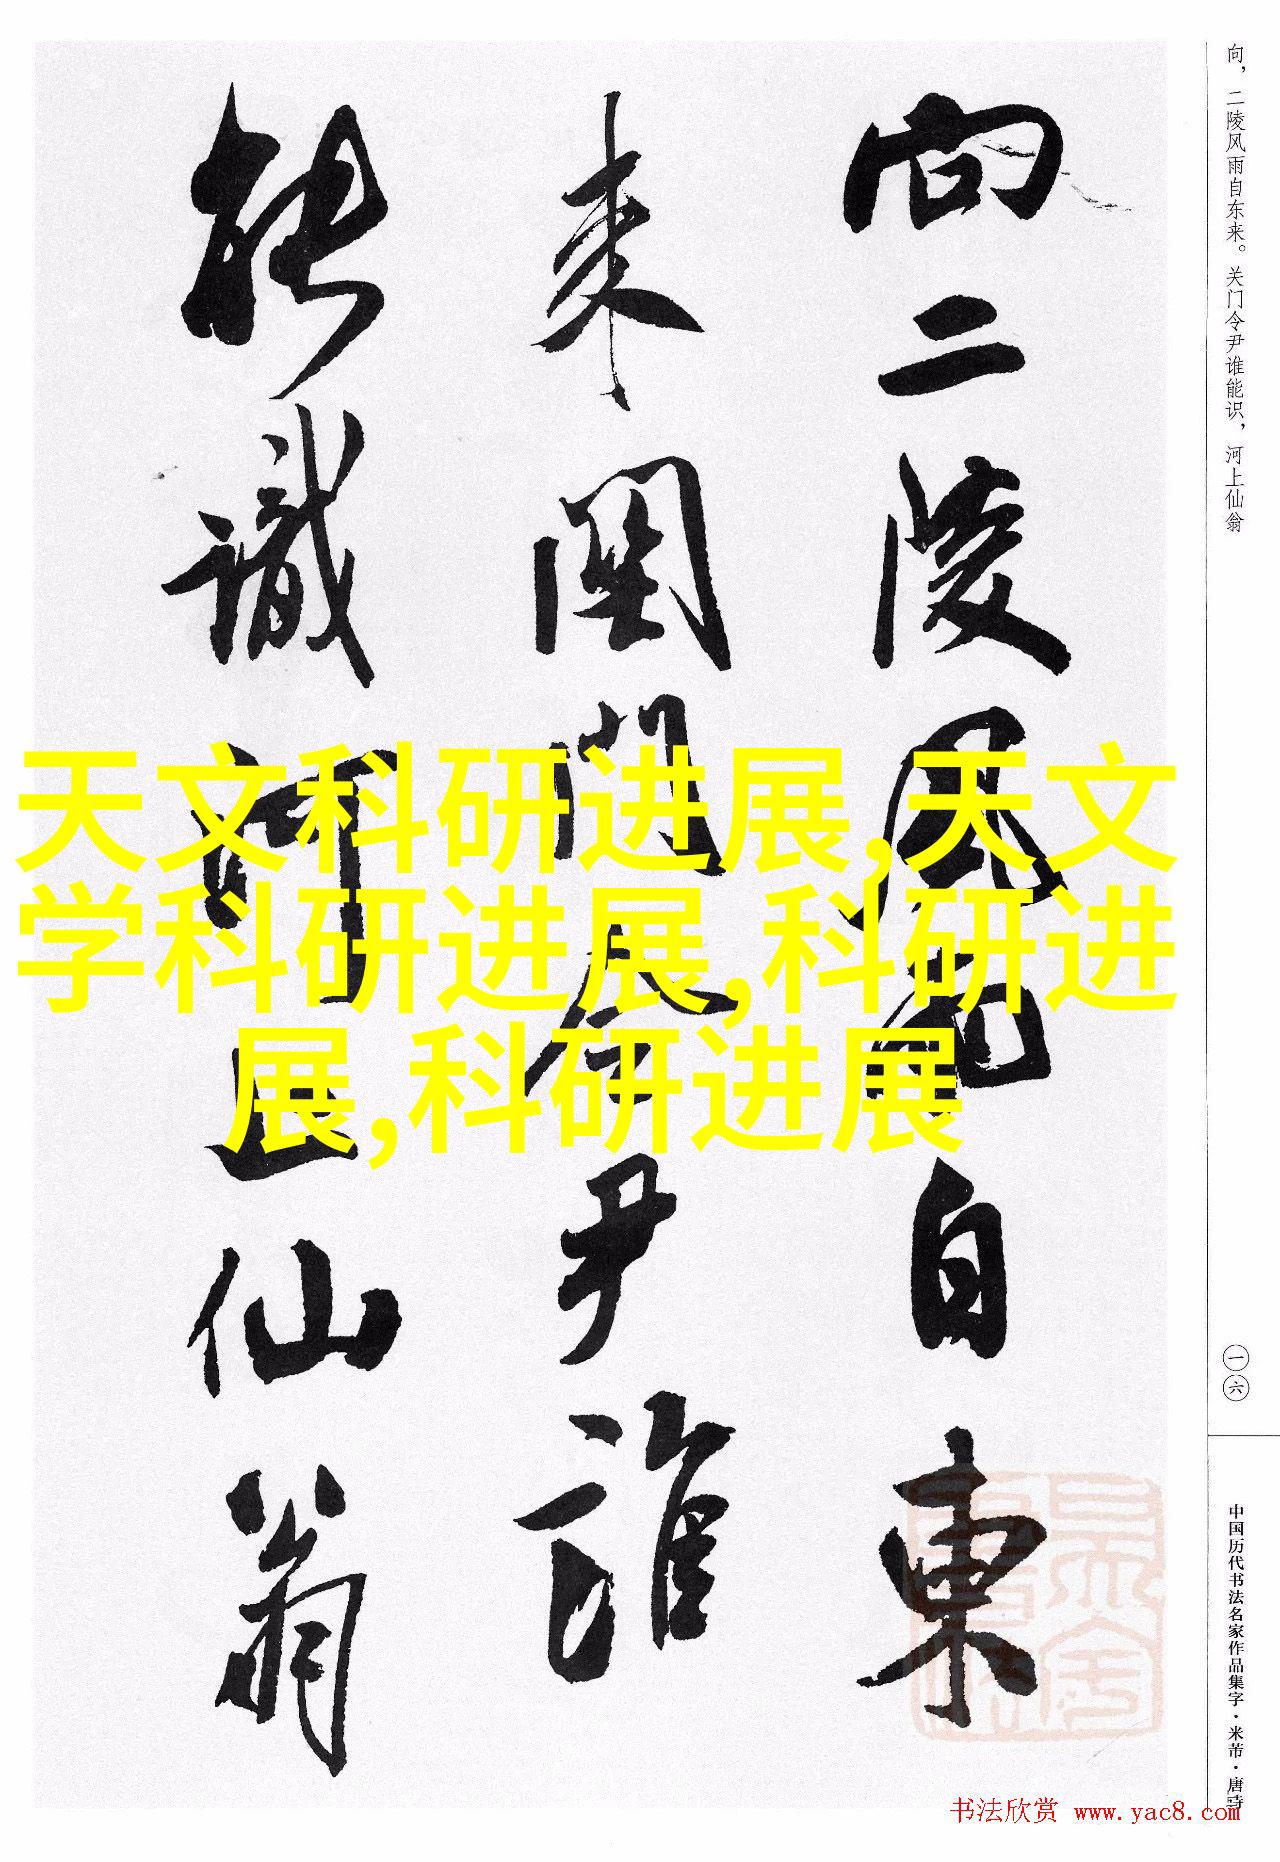 向二陵风雨自东
来关门令尹谁
能识河上仙翁
向，二陵风雨自东来。关门令尹谁能识，河上仙翁
一六
中国历代书法名家作品集字·米芾·唐诗
天文科研进展,天文
学科研进展,科研进
展,科研进展
书法欣赏 www.yac8.com